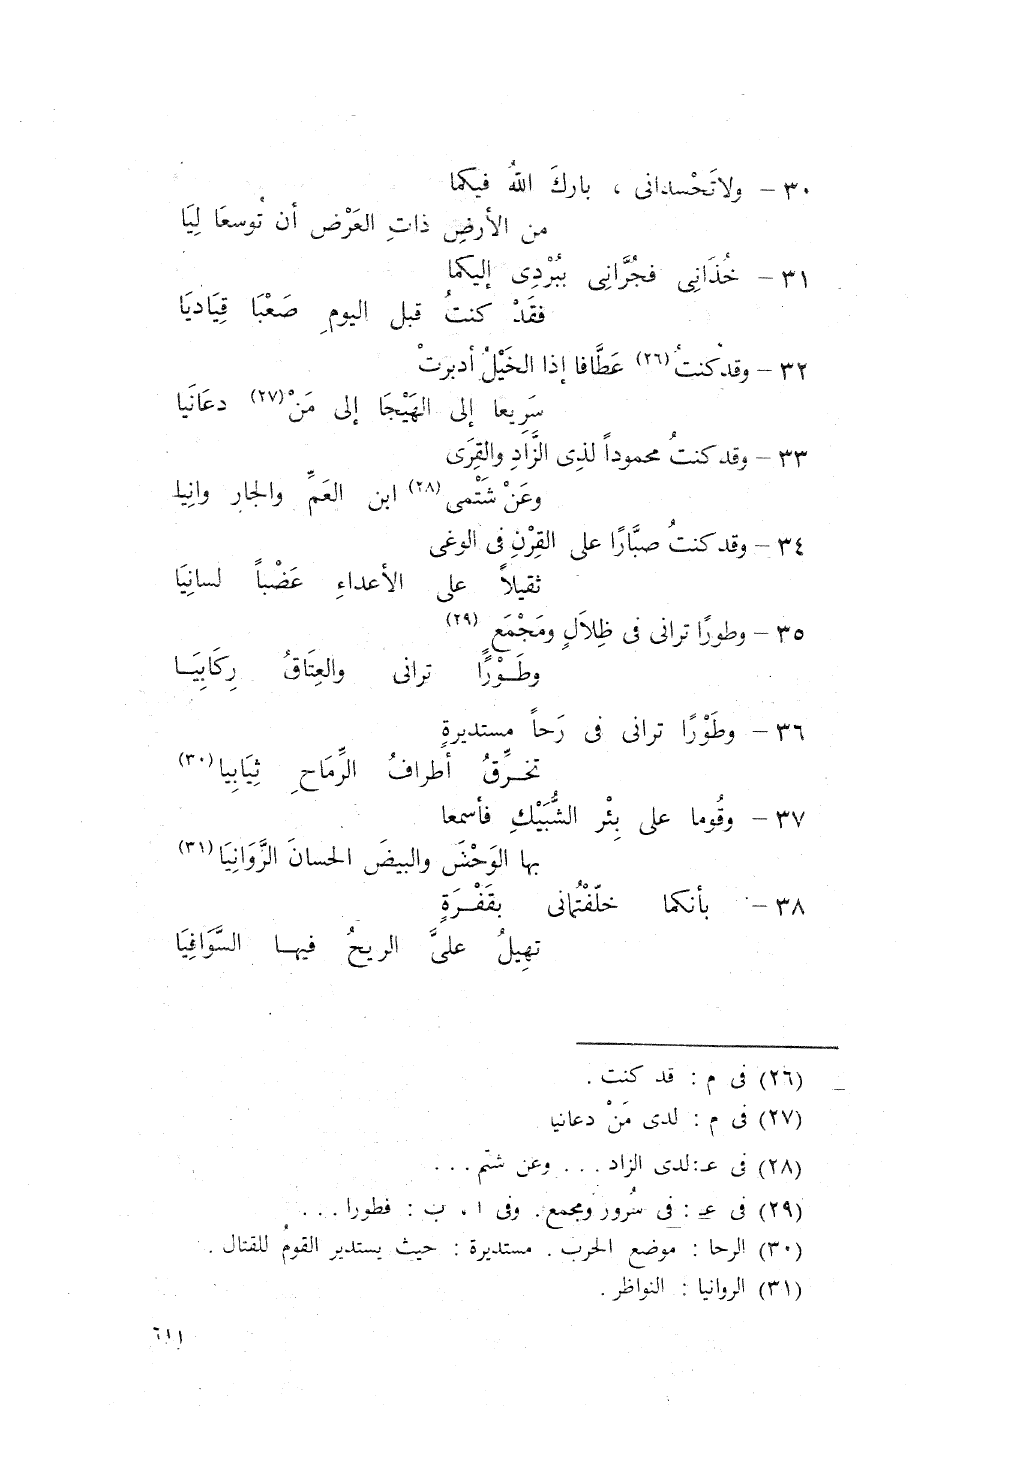 ٣٠ – ولا تَحْسدانى ، باركَ اللهُ فيكما
من الأرضِ ذاتِ العَرْض أن تُوسعَا لِيَا
٣١ – خُذَانِى فجُرَّانِى ببُرْدِى إليكما
فقَدْ كنتُ قبل اليومِ صَعْبًا قِيَاديَا
٣٢ – وقد كنتُ (٢٦) عَطَّافا إذا الخَيْلُ أدبرتْ
سَرِيعا إلى الهَيْجَا إلى مَنْ (٢٧) دعَانَيا
٣٣ – وقد كنتُ محموداً لذِى الزَّادِ والقِرَى
وعَنْ شَتْمى (٢٨) ابن العَمِّ والجارِ وانِيا
٣٤ – وقد كنتُ صبَّارًا على القِرْنِ فى الوغى
ثقيلاً على الأعداءِ عَضْباً لسانِيَا
٣٥ – وطورًا ترانى فى ظِلاَلٍ ومَجْمَعٍ (٢٩)
وطَــوْرًا ترانى والعِتَاقُ رِكَابِيَــا
٣٦ – وطَوْرًا ترانى فى رَحاً مستديرةٍ
تخــرِّقُ أطرافُ الرِّمَاحِ ثِيَابِيا (٣٠)
٣٧ – وقُوما على بِئْر الشُّبَيْكِ فأسمعا
بها الوَحْشَ والبيضَ الحسانَ الرَّوَانِيَا (٣١)
٣٨ – بأنكما خلّفْتُمانى بقَفْــرَةٍ
تهِيلُ علىَّ الريحُ فيهــا السَّوَافِيَا
(٢٦) فى م : قد كنت .
(٢٧) فى م : لدى مَنْ دعانيا
(٢٨) فى عـ : لدى الزاد . . . وعن شتْم . . .
(٢٩) فى عـ : فى سُرور ومجمع . وفى ا ، ب : فطورا . . .
(٣٠) الرحا : موضع الحرب . مستديرة : حيث يستدير القومُ للقتال .
(٣١) الروانيا : النواظر .
٦١١